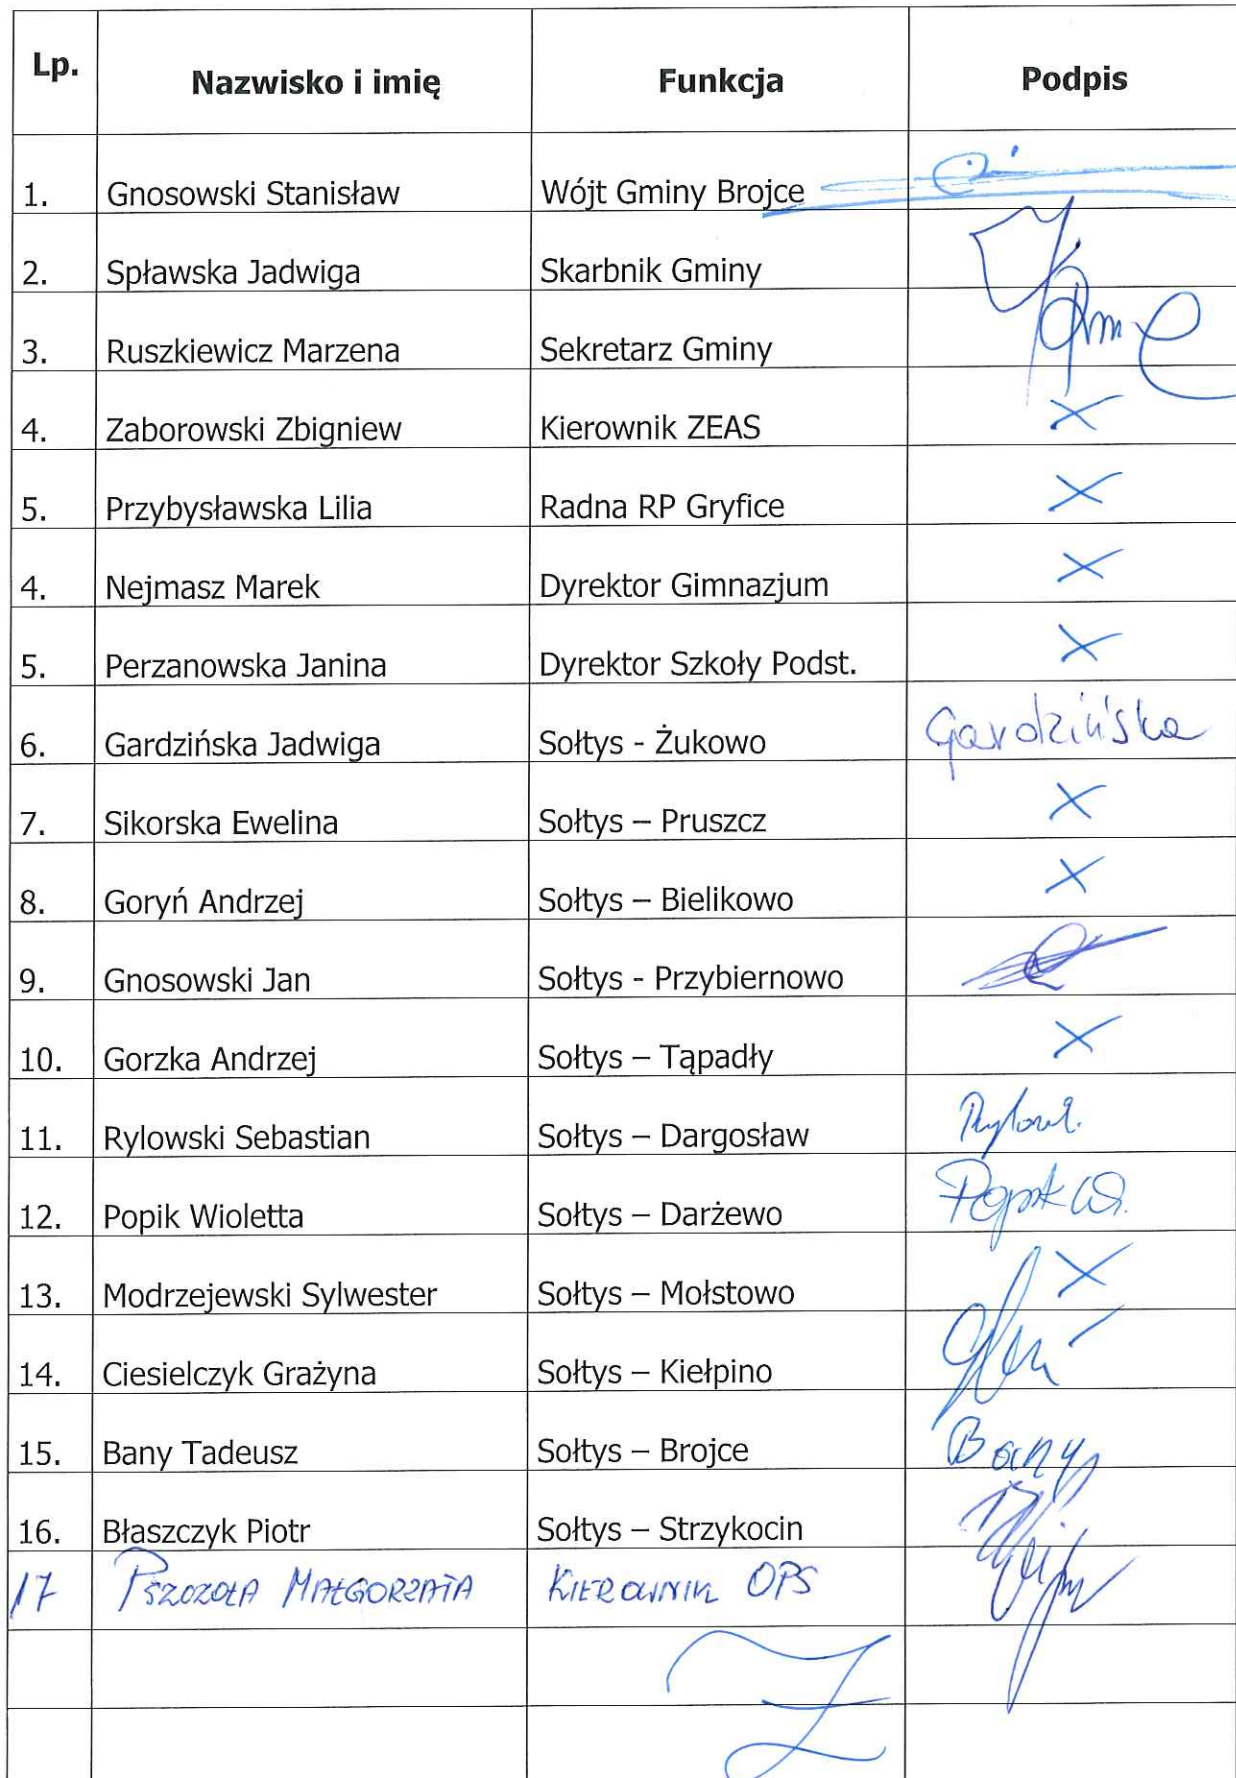 Lp. Nazwisko i imię Funkcja Podpis
1. Gnosowski Stanisław Wójt Gminy Brojce
2. Spławska Jadwiga Skarbnik Gminy
3. Ruszkiewicz Marzena Sekretarz Gminy
4. Zaborowski Zbigniew Kierownik ZEAS X
5. Przybysławska Lilia Radna RP Gryfice X
4. Nejmasz Marek Dyrektor Gimnazjum X
5. Perzanowska Janina Dyrektor Szkoły Podst. X
6. Gardzińska Jadwiga Sołtys - Żukowo Gardzińska
7. Sikorska Ewelina Sołtys – Pruszcz X
8. Goryń Andrzej Sołtys – Bielikowo X
9. Gnosowski Jan Sołtys - Przybiernowo
10. Gorzka Andrzej Sołtys – Tąpadły X
11. Rylowski Sebastian Sołtys – Dargosław
12. Popik Wioletta Sołtys – Darżewo Popik W.
13. Modrzejewski Sylwester Sołtys – Mołstowo X
14. Ciesielczyk Grażyna Sołtys – Kiełpino
15. Bany Tadeusz Sołtys – Brojce Bany
16. Błaszczyk Piotr Sołtys – Strzykocin
17 PSZCZOŁA MAŁGORZATA KIEROWNIK OPS